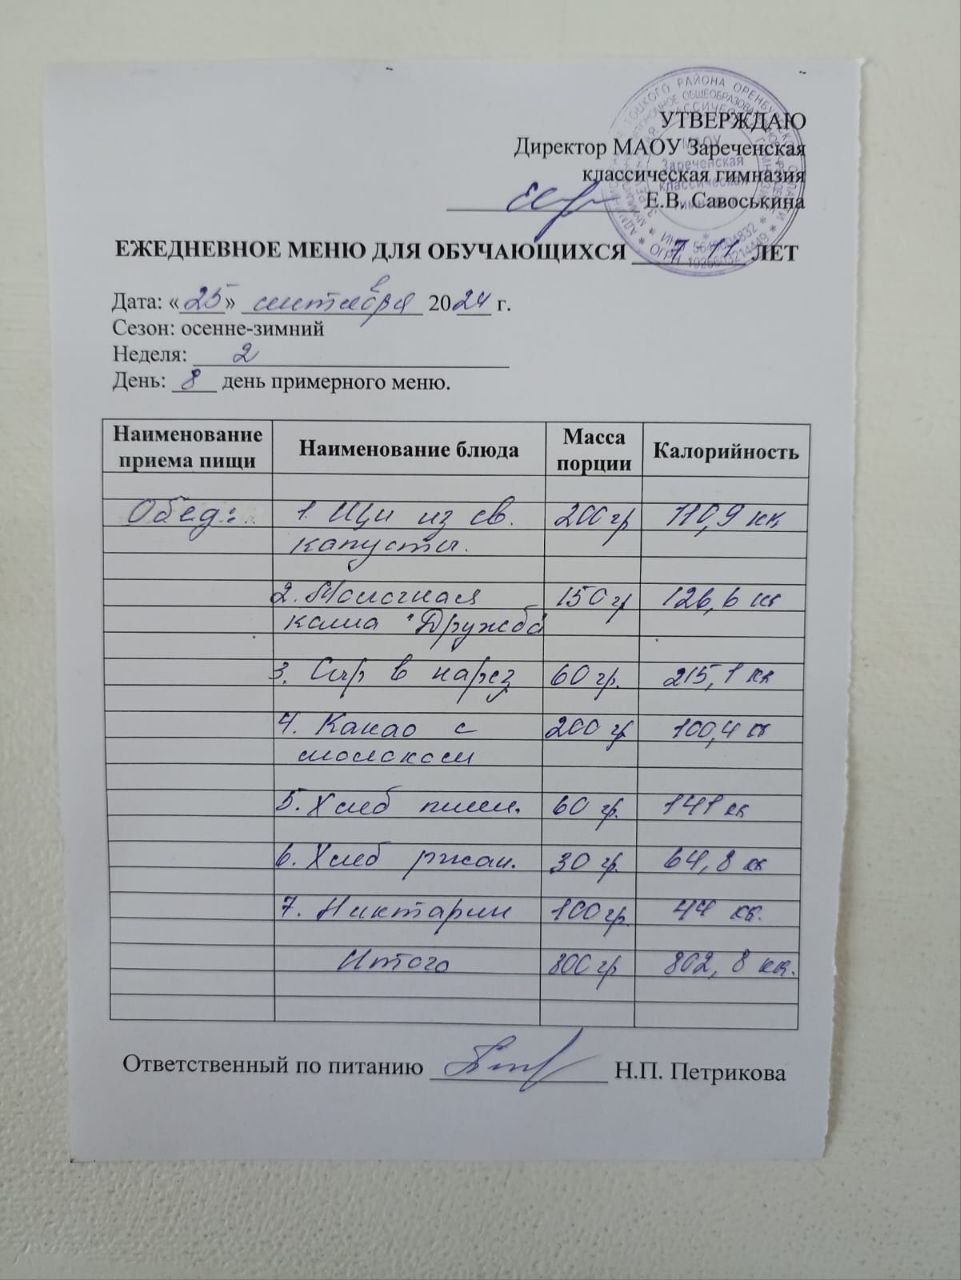 УТВЕРЖДАЮ
Директор МАОУ Зареченская
классическая гимназия
Е.В. Савоськина
ЕЖЕДНЕВНОЕ МЕНЮ ДЛЯ ОБУЧАЮЩИХСЯ 7-11 ЛЕТ
Дата: «25» сентября 2024 г.
Сезон: осенне-зимний
Неделя: 2
День: 8 день примерного меню.
Наименование приема пищи Наименование блюда Масса порции Калорийность
Обед: 1. Щи из св. 200 гр 110,9 кк
капусты.
2. Молочная 150 гр 126,6 кк
каша "Дружба
3. Сыр в нарез 60 гр. 215,1 кк
4. Какао с 200 гр 100,4 кк
молоком
5. Хлеб пшен. 60 гр. 141 кк
6. Хлеб ржан. 30 гр. 64,8 кк
7. Никтарин 100 гр. 44 кк.
Итого 800 гр 802,8 кк.
Ответственный по питанию Н.П. Петрикова